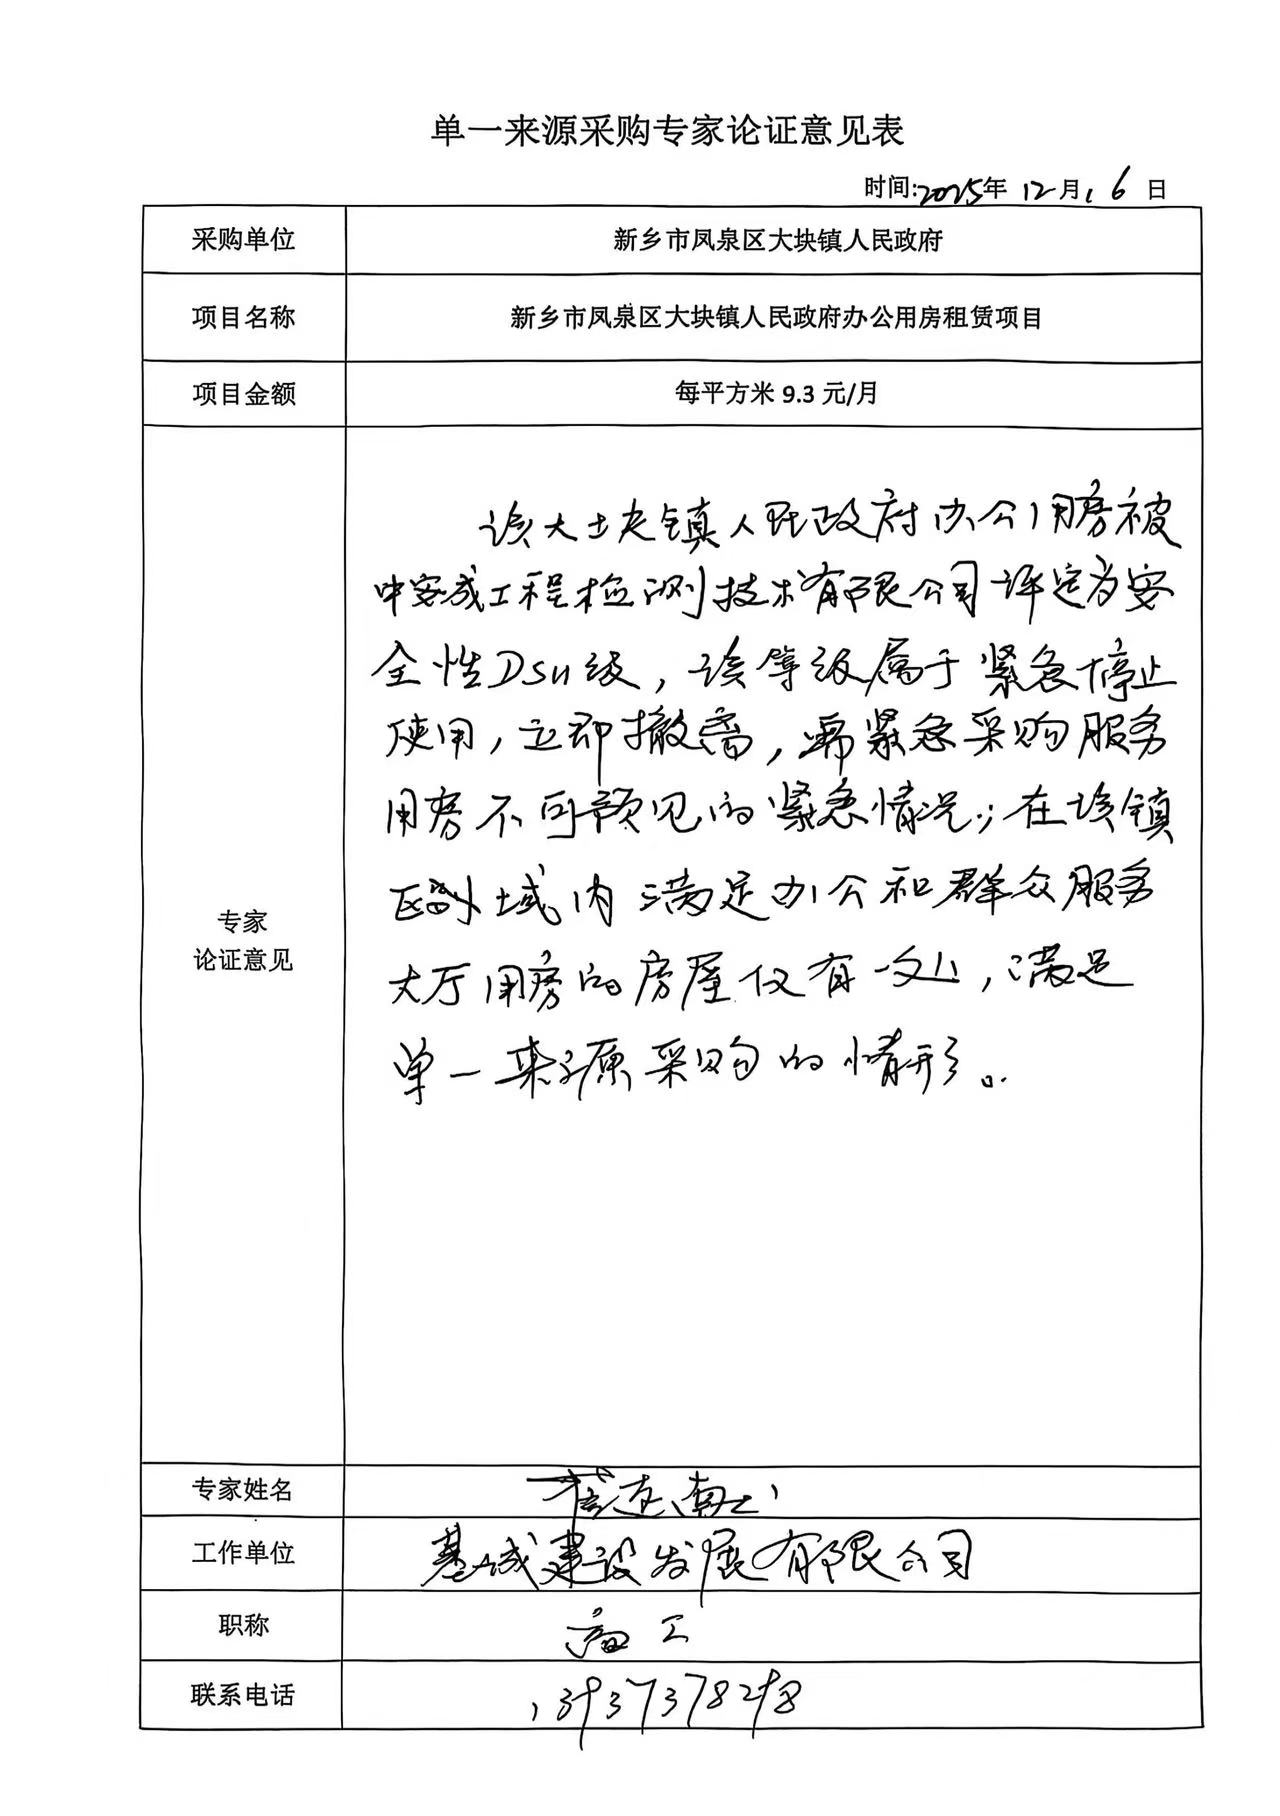 单一来源采购专家论证意见表
时间:2025年 12月16日
采购单位 新乡市凤泉区大块镇人民政府
项目名称 新乡市凤泉区大块镇人民政府办公用房租赁项目
项目金额 每平方米 9.3 元/月
该大块镇人民政府办公用房被
中安成工程检测技术有限公司评定为安
全性Dsu级，该等级属于紧急停止
使用，立即撤离，需紧急采购服务
用房不可预见的紧急情况；在该镇
区域内满足办公和群众服务
大厅用房的房屋仅有一处，满足
单一来源采购的情形。
专家
论证意见
专家姓名
工作单位 基城建设发展有限公司
职称 高工
联系电话 13937378298